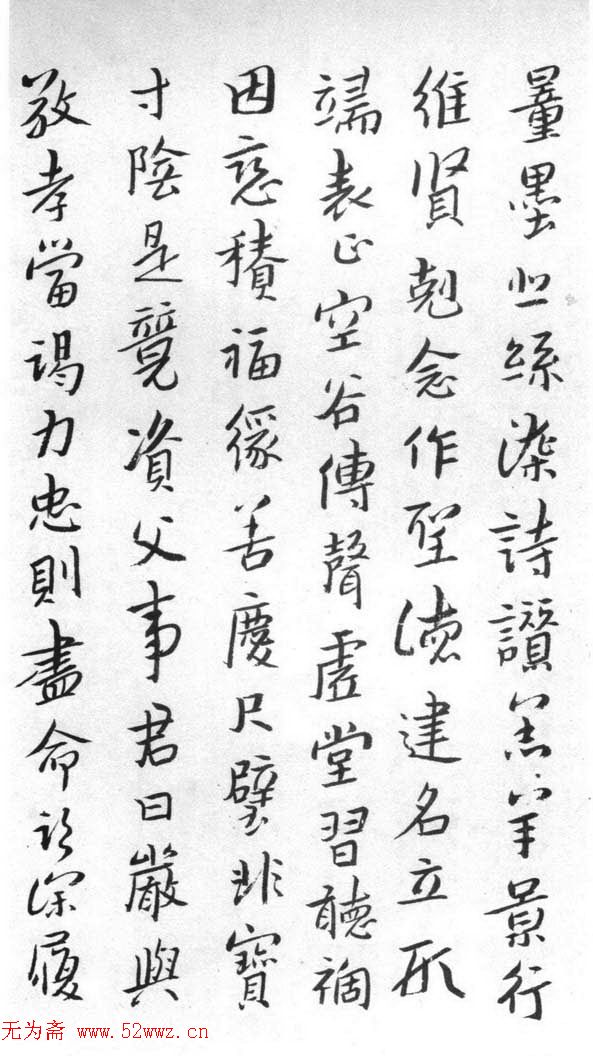 量墨悲絲染詩讚羔羊景行
維賢剋念作聖德建名立形
端表正空谷傳聲虛堂習聽禍
因惡積福緣善慶尺璧非寶
寸陰是競資父事君曰嚴與
敬孝當竭力忠則盡命臨深履
无为斋 www.52wwz.cn